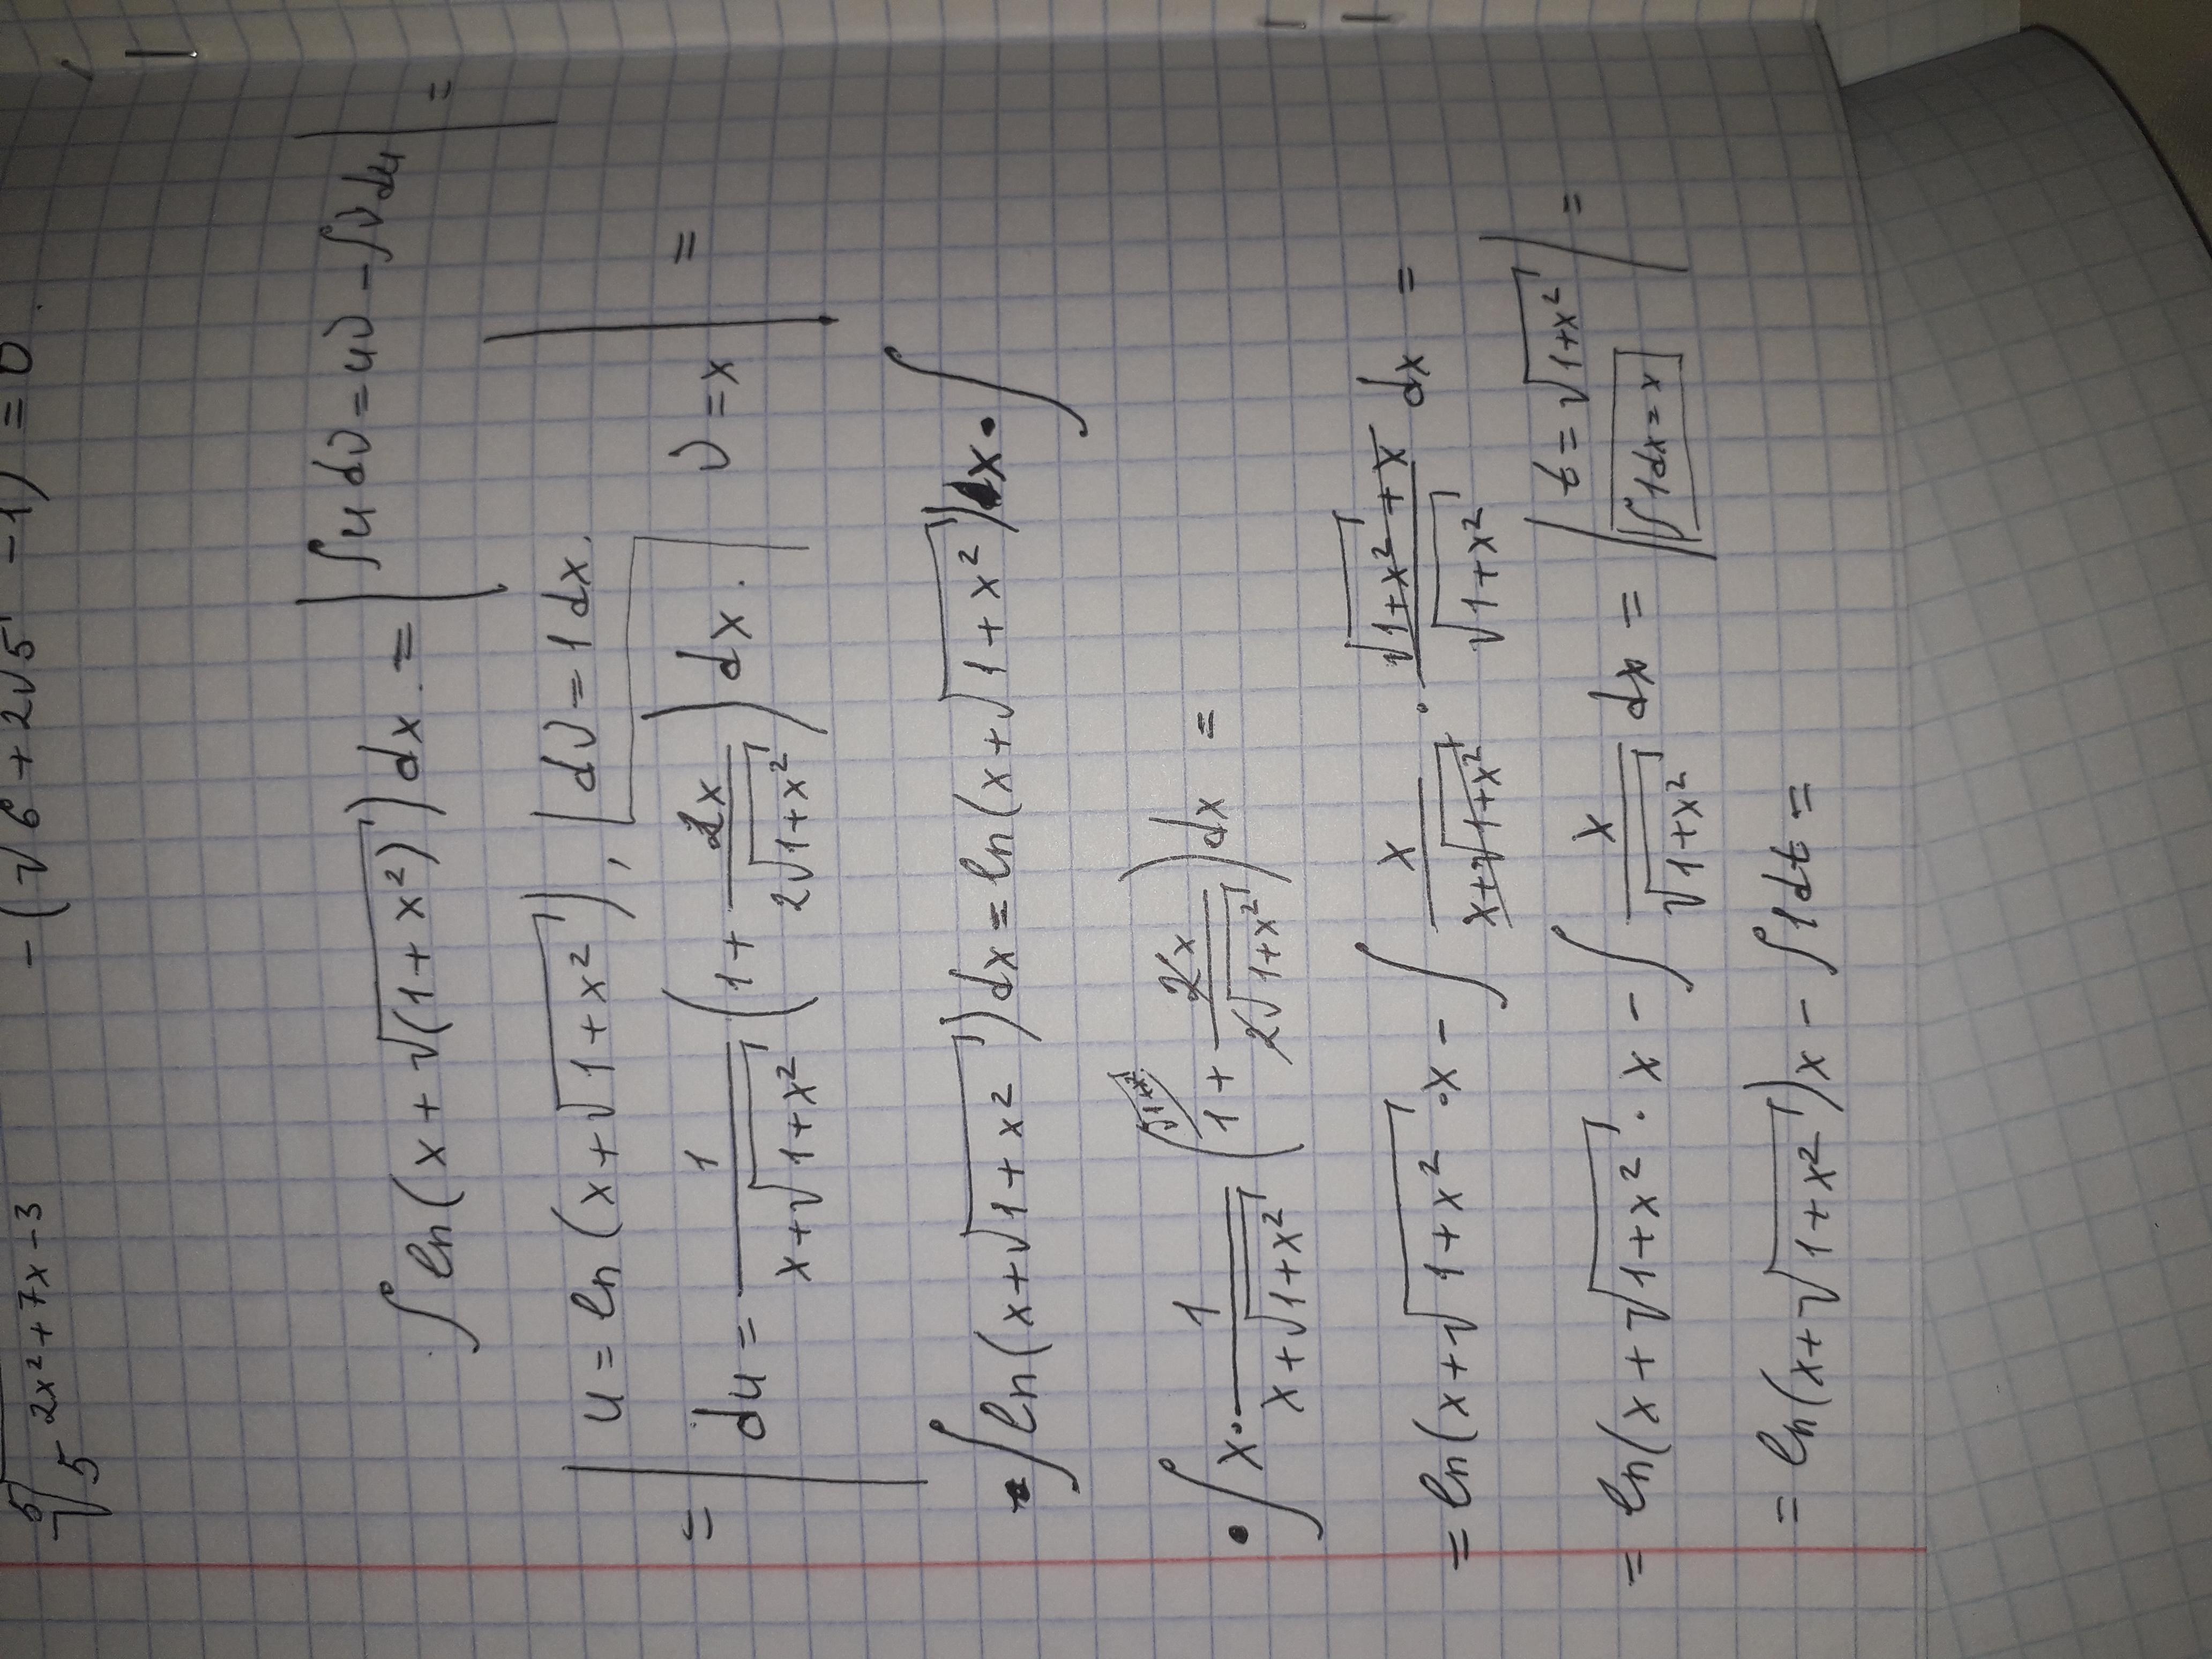 ⁵√5^(2x²+7x-3) - (√6+2√5 -1) = 0.
∫ ln(x+√(1+x²)) dx = | ∫u dv = uv - ∫v du | =
= | u = ln(x+√1+x²), dv = 1 dx,
du = 1/(x+√1+x²) (1 + 2x/(2√1+x²)) dx. v = x | =
∫ ln(x+√1+x²) dx = ln(x+√1+x²) x • ∫
• ∫ x · 1/(x+√1+x²) (1 + 2x/(2√1+x²)) dx =
= ln(x+√1+x² · x - ∫ x/(x+√1+x²) · (√1+x² + x)/√1+x² dx =
= ln(x+√1+x² · x - ∫ x/√1+x² dx = | t = √1+x² ∫1dx = x | =
= ln(x+√1+x²) x - ∫1dt =